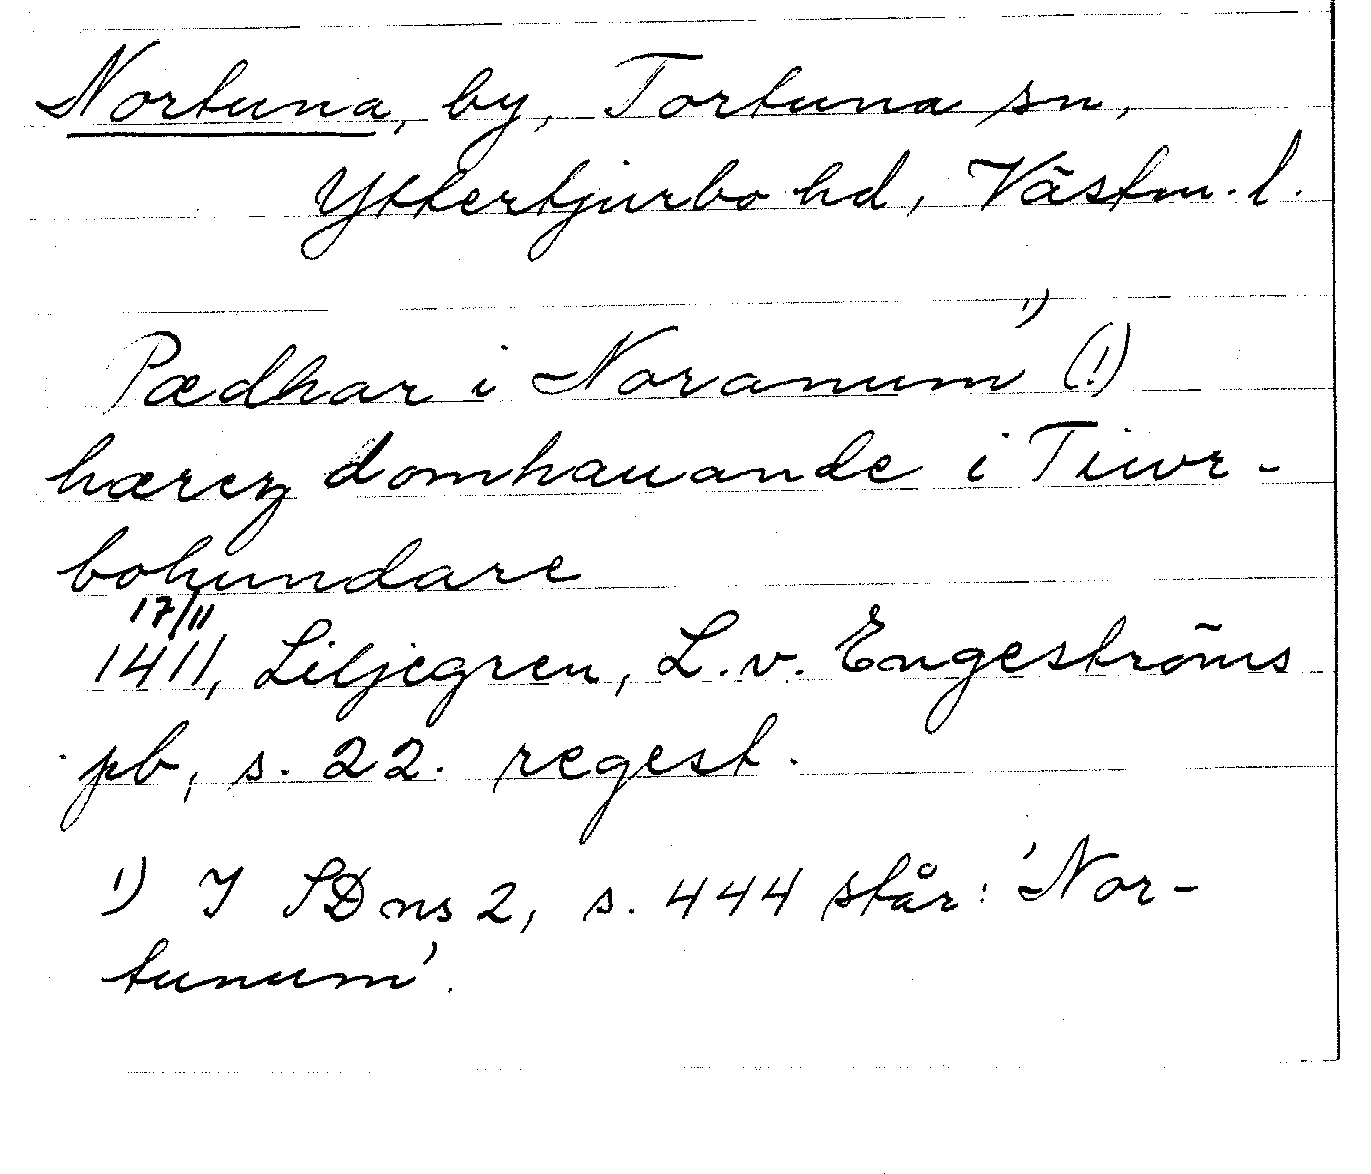 Nortuna, by, Tortuna sn,
Yttertjurbo hd, Västm. l.
Pædhar i Noranum 1) (!)
hærez domhauande i Tiwr-
bohundare
17/11
1411, Liljegren, L. v. Engeströms
pb, s. 22. regest.
1) I SD ns 2, s. 444 står: 'Nor-
tunum'.